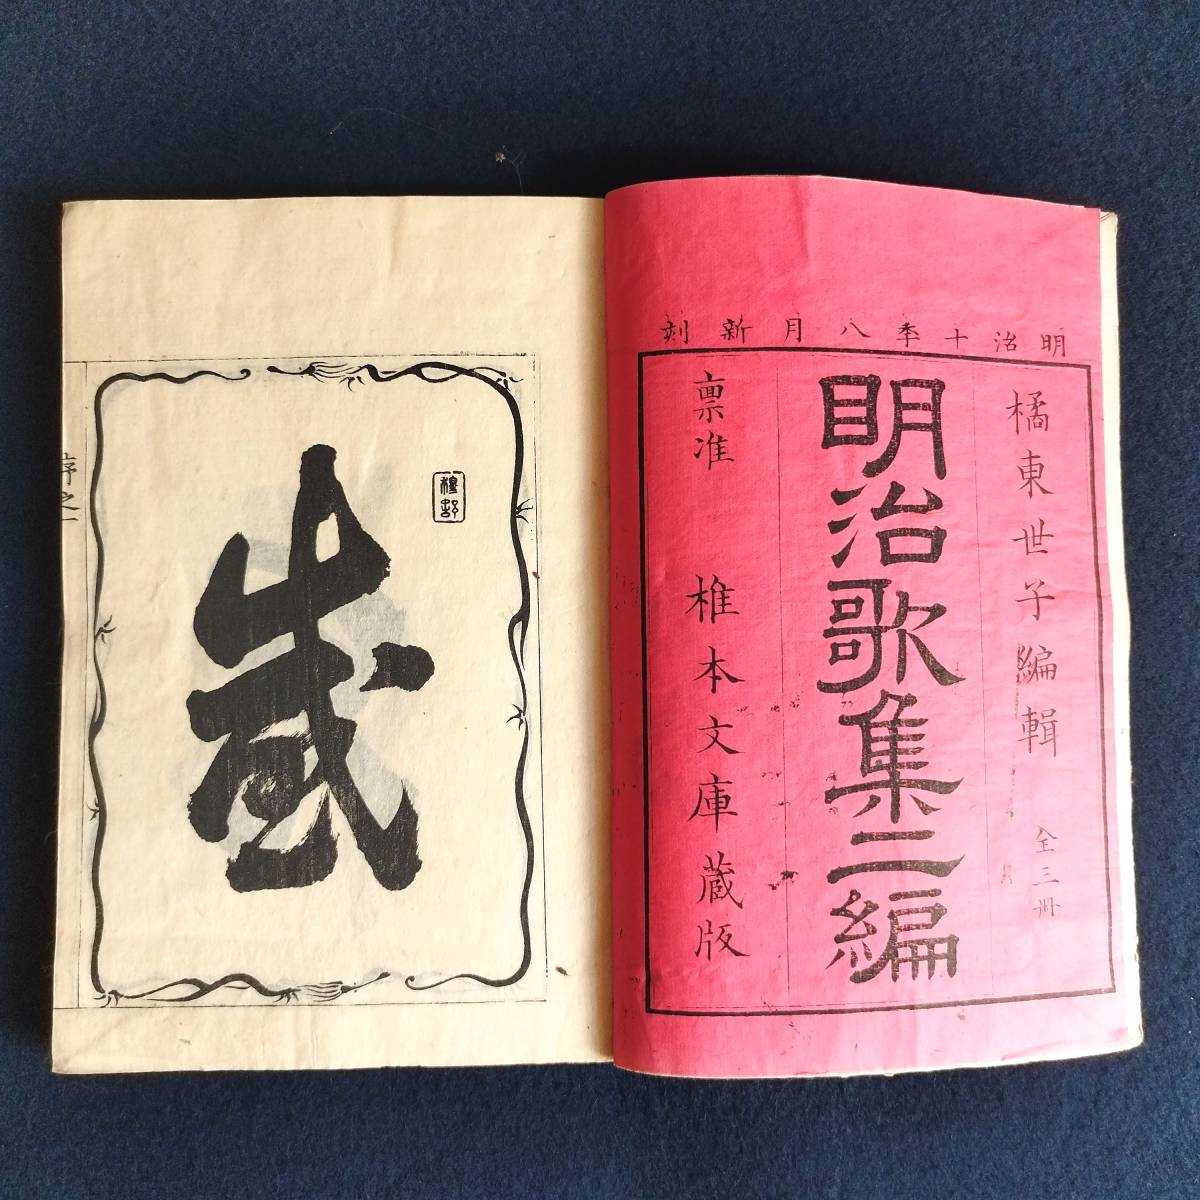 明治十季八月新刻
橘東世子編輯 全三冊
明治歌集二編
稟准 椎本文庫蔵版
盛
序之一